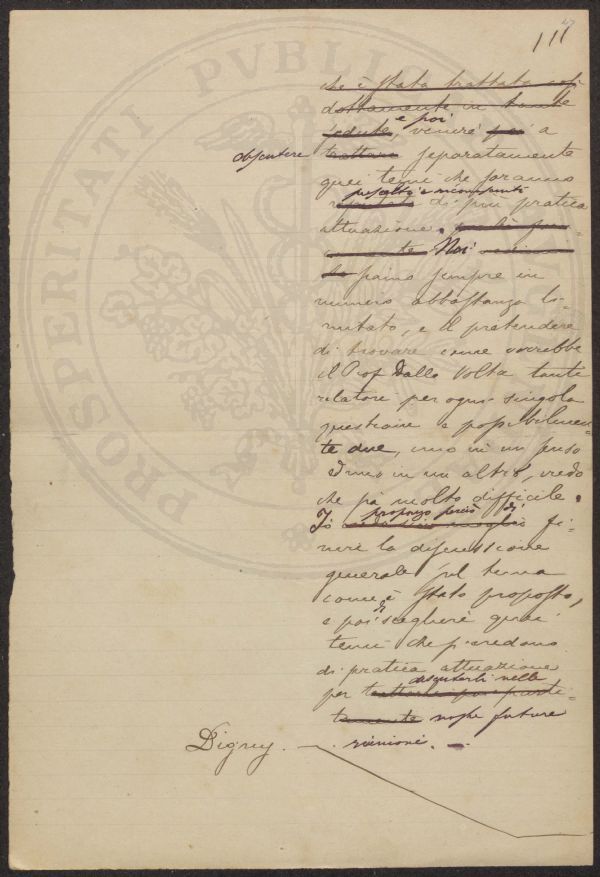 111
PROSPERITATI PUBLIC
che è stata trattata così
dottamente in tante
sedute, e poi venire poi a
discutere trattare separatamente
quei temi che saranno
prescelti e riconosciuti
di più pratica
attuazione.
Noi
siamo sempre in
numero abbastanza li-
mitato, e il pretendere
di trovare come vorrebbe
il Prof Dalla Volta tanti
relatori per ogni singola
questione e possibilmen-
te due, uno in un senso
e uno in un altro, credo
che sia molto difficile.
Io propongo perciò di fi-
nire la discussione
generale sul tema
come è stato proposto,
e poi di scegliere quei
temi che si credono
di pratica attuazione
per discuterli nelle
nostre future
riunioni. —
Digny. —